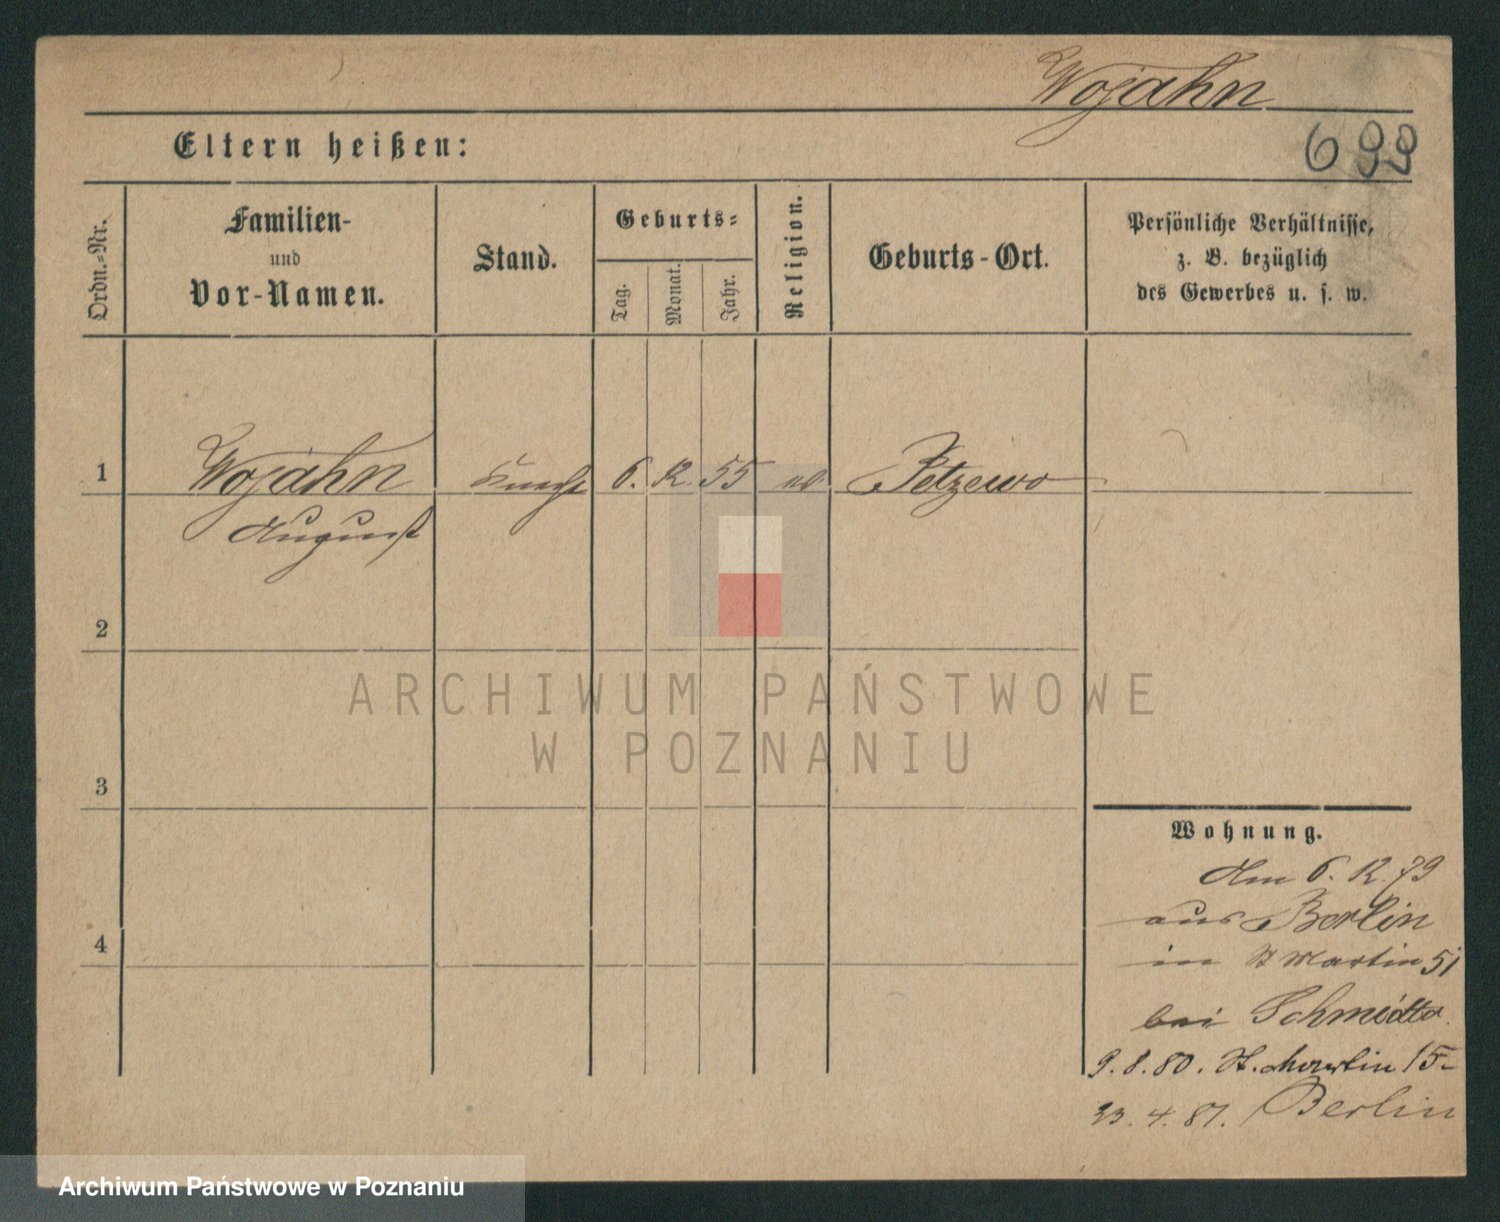 Wojahn
Eltern heißen:
699
Ordn.-Nr.
Familien-
und
Vor-Namen.
Stand.
Geburts-
Tag.
Monat.
Jahr.
Religion.
Geburts-Ort.
Persönliche Verhältnisse,
z. B. bezüglich
des Gewerbes u. s. w.
1 Wojahn Knecht 6. 12 55 Petzewo
August
2
3
4
Wohnung.
Am 6. 12. 79
aus Berlin
in St Martin 51
bei Schmidt
9. 8. 80. St. Martin 15
23. 4. 81. Berlin
ARCHIWUM PAŃSTWOWE
W POZNANIU
Archiwum Państwowe w Poznaniu